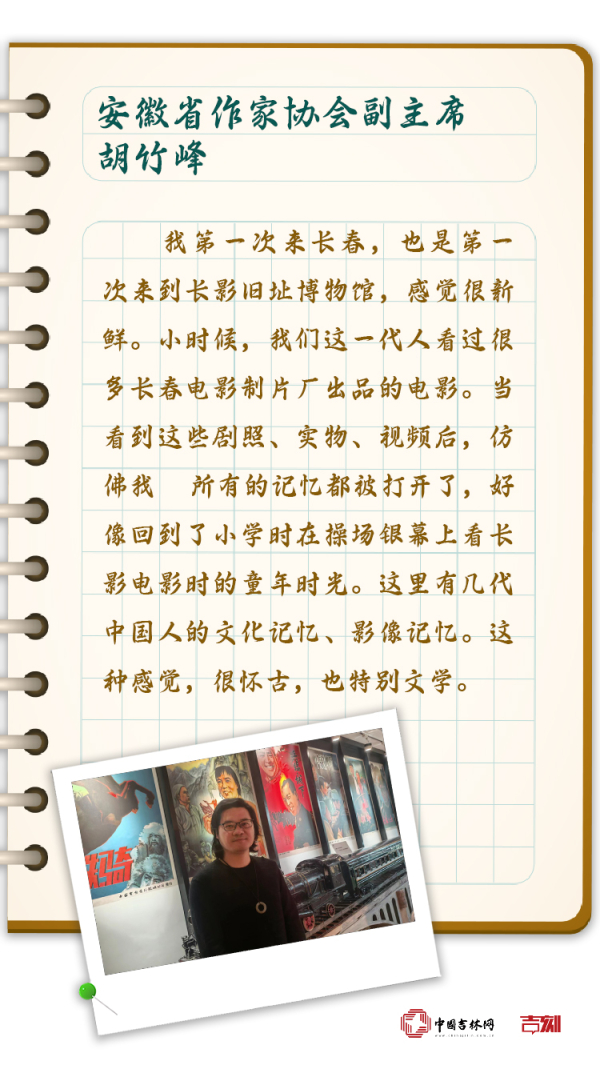 安徽省作家协会副主席
胡竹峰
我第一次来长春，也是第一
次来到长影旧址博物馆，感觉很新
鲜。小时候，我们这一代人看过很
多长春电影制片厂出品的电影。当
看到这些剧照、实物、视频后，仿
佛我 所有的记忆都被打开了，好
像回到了小学时在操场银幕上看长
影电影时的童年时光。这里有几代
中国人的文化记忆、影像记忆。这
种感觉，很怀古，也特别文学。
中国吉林网
吉刻